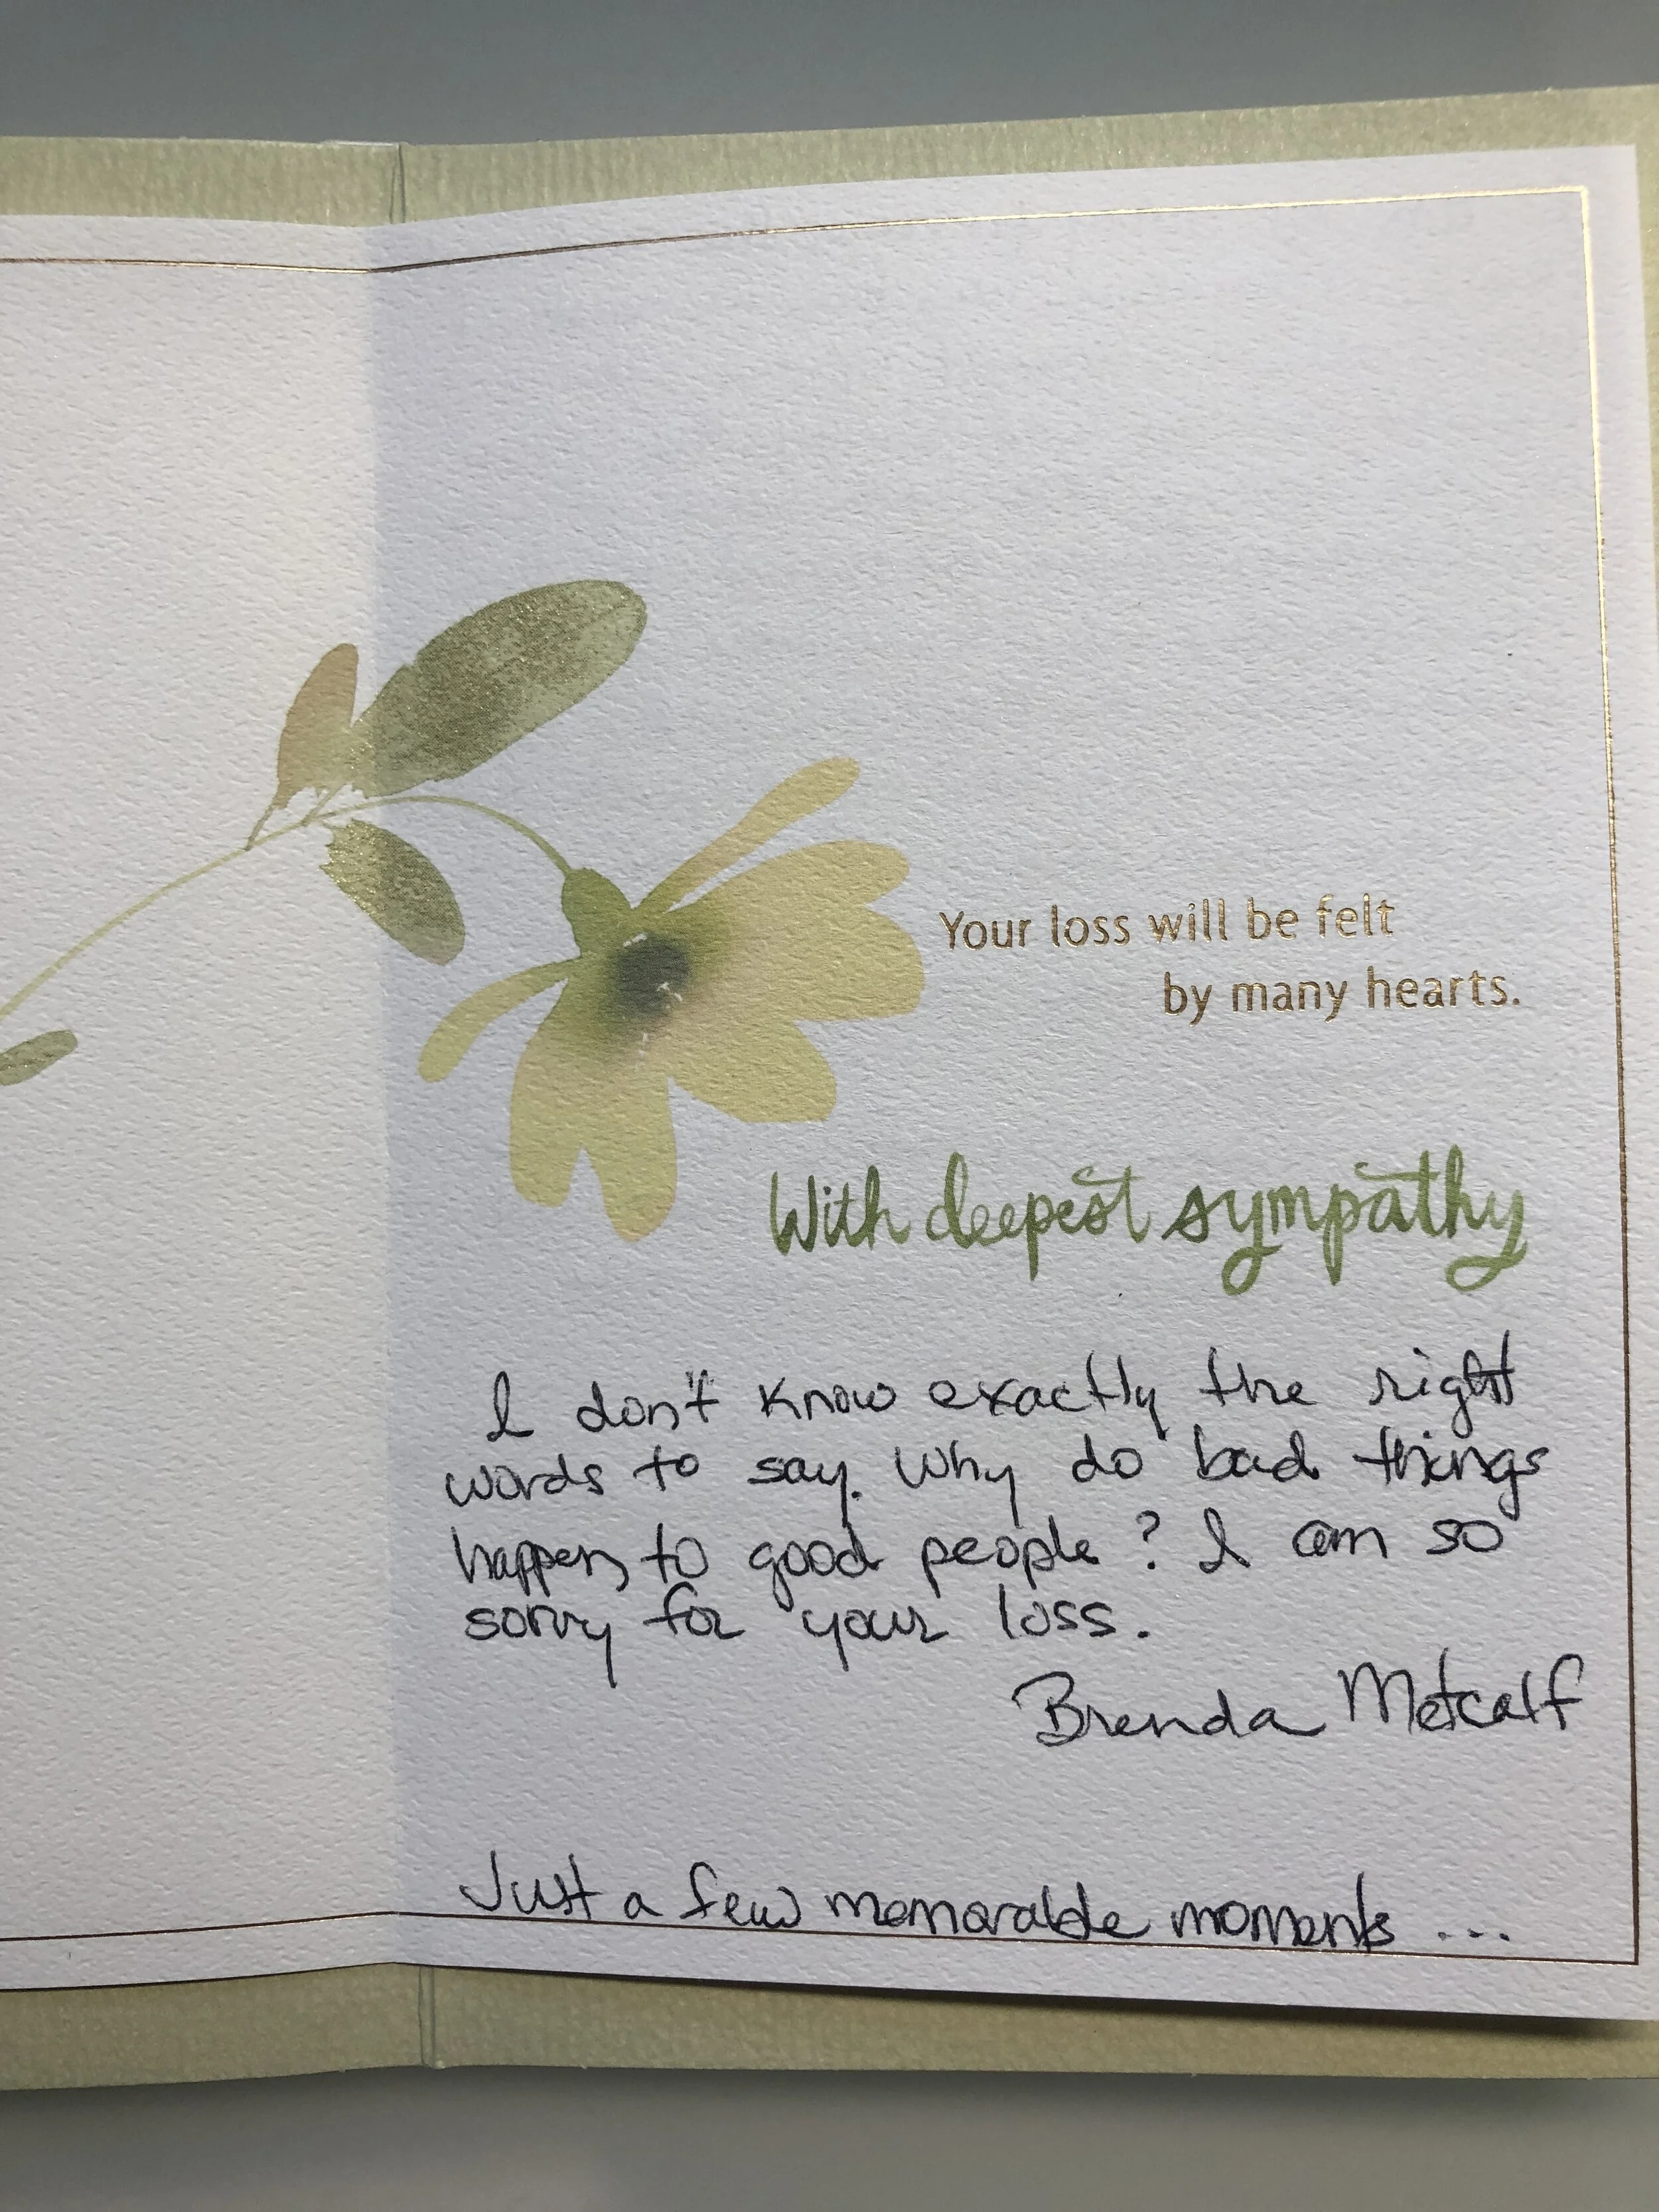 Your loss will be felt
by many hearts.
With deepest sympathy
I don't know exactly the right
words to say. Why do bad things
happen to good people? I am so
sorry for your loss.
Brenda Metcalf
Just a few memorable moments ...